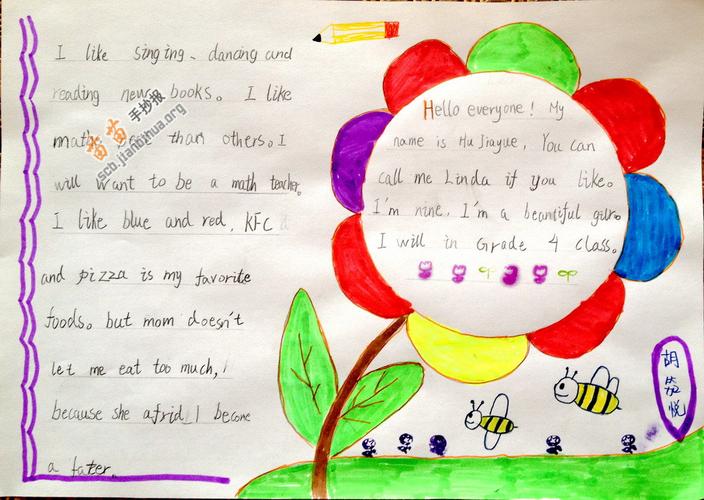 I like singing、dancing and
reading new books。 I like
math than others。I
will want to be a math teacher。
I like blue and red, KFC
and pizza is my favorite
foods。but mom doesn't
let me eat too much,
because she afrid I become
a fater.
苗苗手抄报
scb.jianbihua.org
Hello everyone! My
name is Hu Jiayue, You can
call me Linda if you like。
I'm nine, I'm a beautiful gilr。
I will in Grade 4 class。
胡
悦